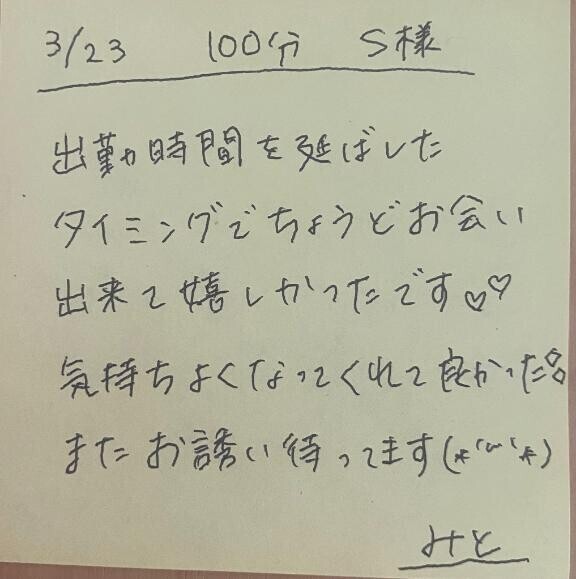 3/23 100分 S様
出勤時間を延ばした
タイミングでちょうどお会い
出来て嬉しかったです♡♡
気持ちよくなってくれて良かった
またお誘い待ってます(*'ω'*)
みと